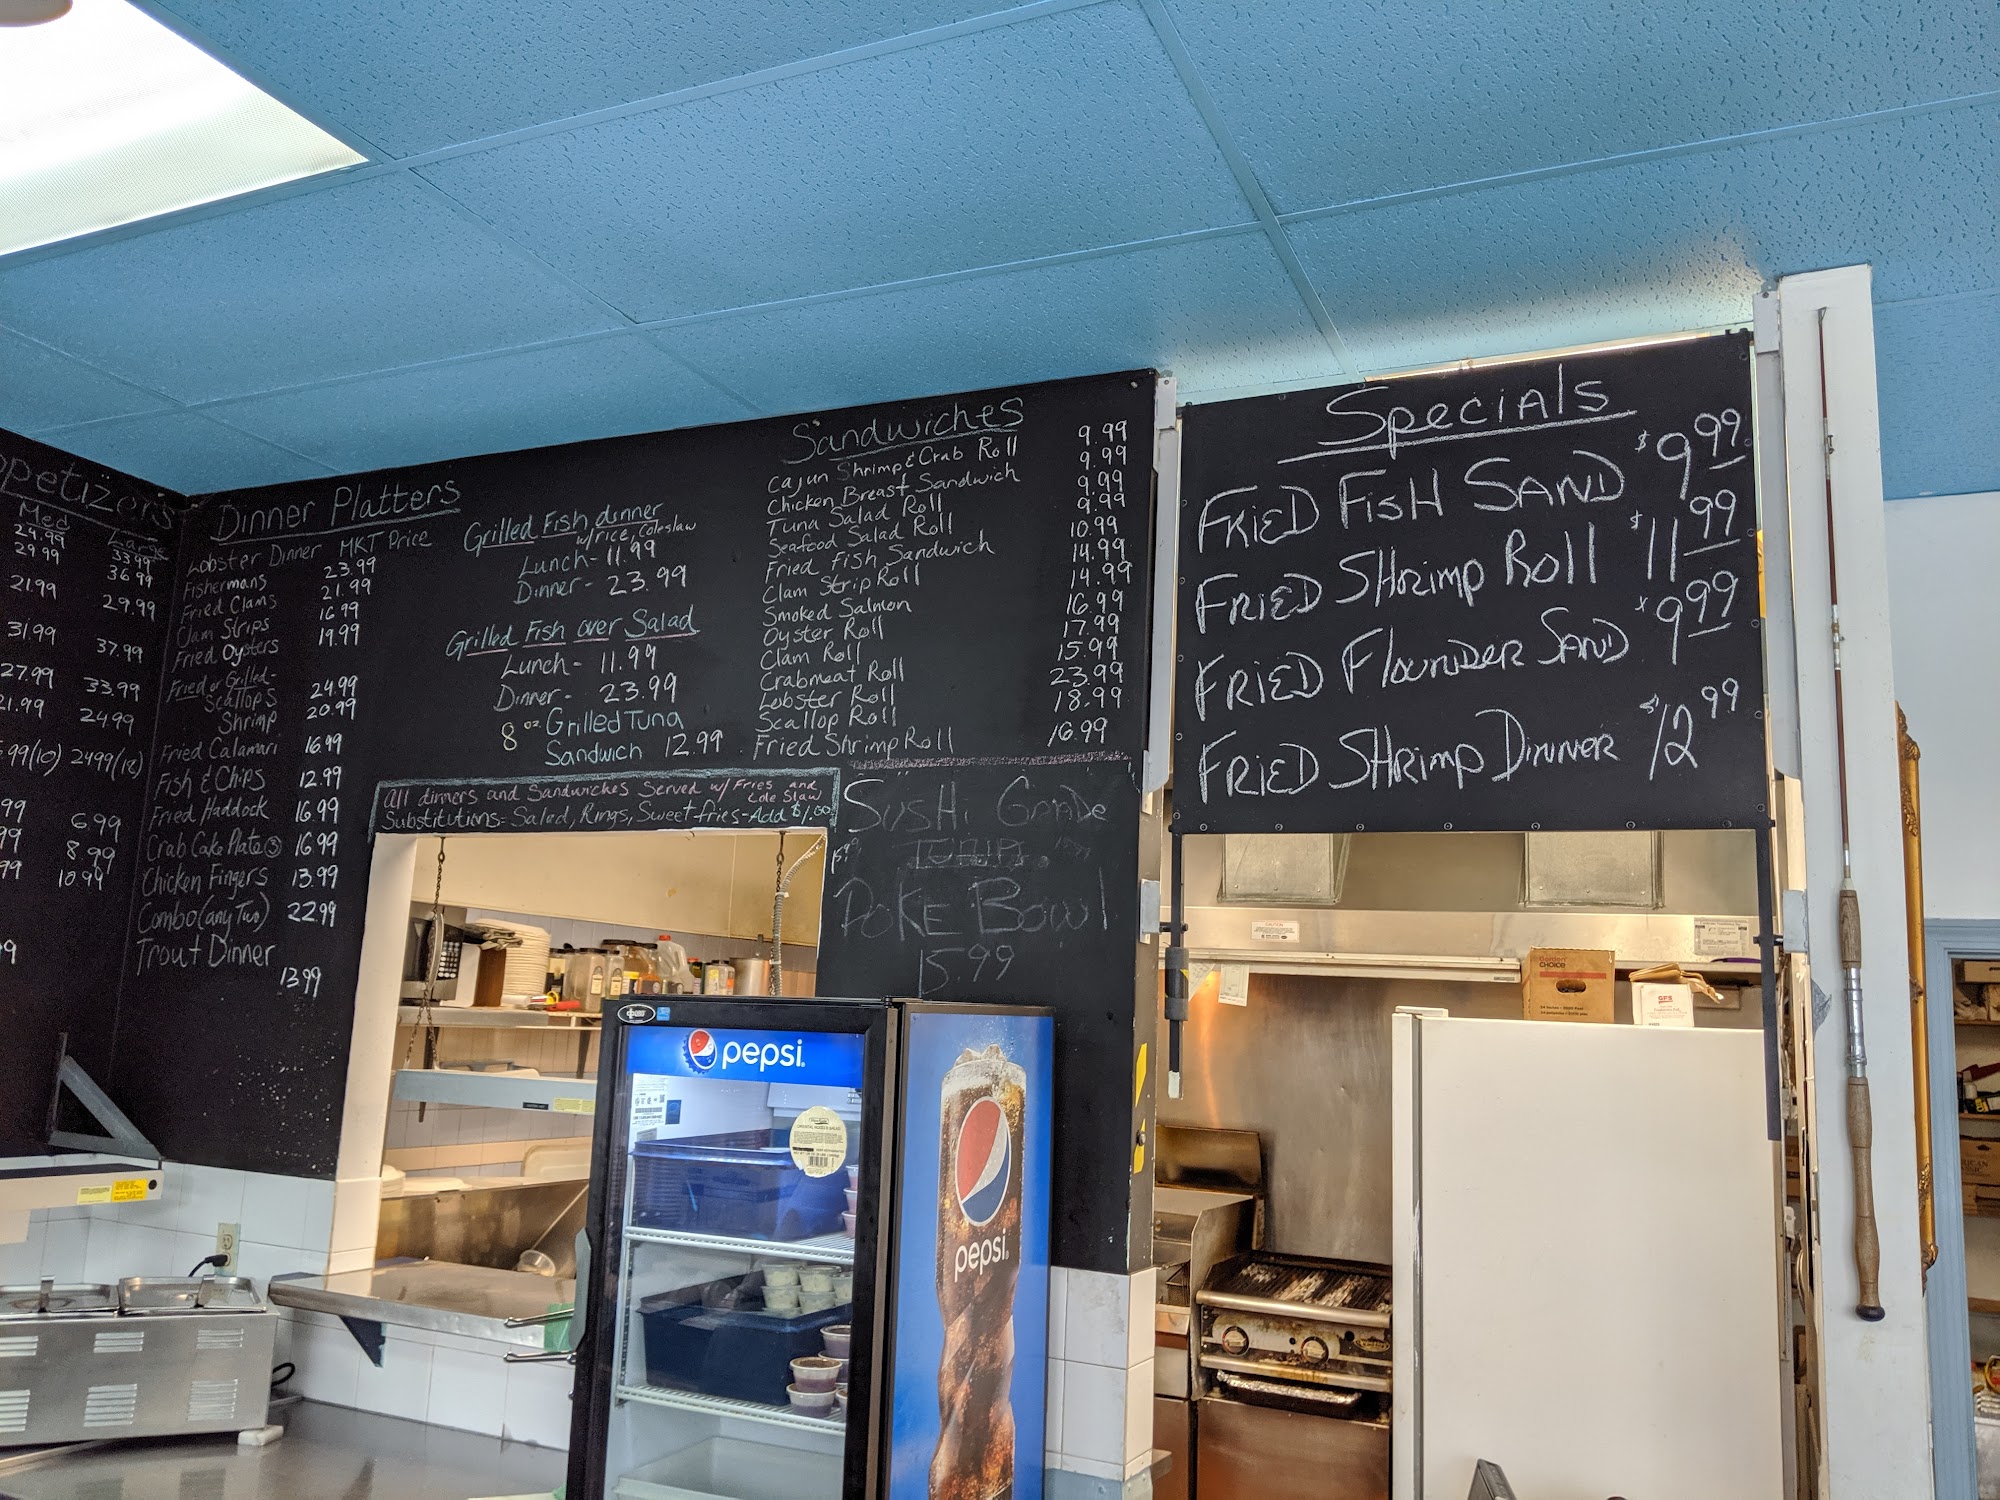 Appetizers
Med Large
24.99 33.99
29.99 36.99
21.99 29.99
31.99 37.99
27.99 33.99
21.99 24.99
(10) 24.99(12)
6.99
8.99
10.99
Dinner Platters
Lobster Dinner MKT Price
Fishermans 23.99
Fried Clams 21.99
Clam Strips 16.99
Fried Oysters 19.99
Fried or Grilled-
Scallops 24.99
Shrimp 20.99
Fried Calamari 16.99
Fish & Chips 12.99
Fried Haddock 16.99
Crab Cake Plate (3) 16.99
Chicken Fingers 13.99
Combo (any Two) 22.99
Trout Dinner
13.99
Grilled Fish dinner
w/rice, coleslaw
Lunch- 11.99
Dinner- 23.99
Grilled Fish over Salad
Lunch- 11.99
Dinner- 23.99
8 oz. Grilled Tuna
Sandwich 12.99
Sandwiches
Cajun Shrimp & Crab Roll 9.99
Chicken Breast Sandwich 9.99
Tuna Salad Roll 9.99
Seafood Salad Roll 9.99
Fried Fish Sandwich 10.99
Clam Strip Roll 14.99
Smoked Salmon 14.99
Oyster Roll 16.99
Clam Roll 17.99
Crabmeat Roll 15.99
Lobster Roll 23.99
Scallop Roll 18.99
Fried Shrimp Roll 16.99
All dinners and Sandwiches Served w/ Fries and
Cole Slaw
Substitutions- Salad, Rings, Sweet fries- Add $1.00
Sushi Grade
Tuna
Poke Bowl
15.99
Specials
Fried Fish Sand $9.99
Fried Shrimp Roll $11.99
Fried Flounder Sand $9.99
Fried Shrimp Dinner $12.99
pepsi
pepsi
CHOICE
GFS
CAUTION